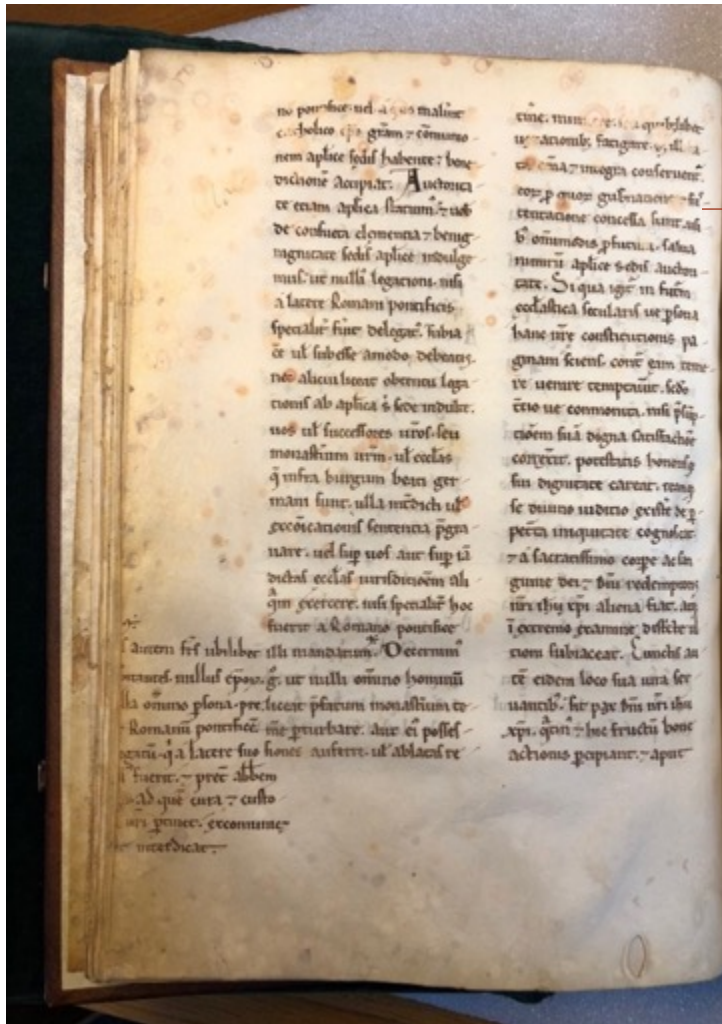 no pontifice uel a q̄ malu͛it
catholico gr̄am ⁊ cōmunio
nem aplice sedis habente: bene
dictionē accipiat. Auctorita
te etiam aplica statuim᷒ ⁊ uob
de consueta clementia ⁊ benig
nignitate sedis aplice indulge
mus. ut nulli legationi. nisi
a latere Romani pontificis
specialit͛ fu͛it delegat᷒. subia
c͛e ul̄ subesse amodo debeatis.
nec alicui liceat obtentu lega
tionis ab aplica s̄ sede indulte.
uos ul̄ successores ur̄os. seu
monast͛ium ur̄m. ul̄ eccl̄as
q̄ infra burgum beati ger
mani sunt. ulla int͛dicti ul̄
excōicationis sententia p̄gra
uare. uel sup͛ uos aut sup͛ iā
dictas eccl̄as iurisditionē ali
quā exercere. nisi specialit͛ hoc
fuerit a Romano pontifice
illi mandatum. Decernim᷒
g͛. ut nulli omīno hominū
liceat p̄fatum monast͛ium te
me p͛turbare. aut ei᷒ posses
siones auferre. ul̄ ablatas re
autem fr̄s ubilibet
nullus ep̄oꝝ
omīno p͛sona. pre
Romanū pontificē
q̄ a latere suo
fuerit. ⁊ pret͛ abb̄em
ad quē cura ⁊ custo
ur̄i p͛tinet. excommunic
interdicat.
tine. minuere
uexationib᷒ fatigare.
om̄ia ⁊ integra conseruent᷒.
eoꝝ p͛ quoꝝ gub͛natione ⁊ sus
tentatione concessa sunt. usi
b᷒ omnimodis p͛futura. salua
nimirū aplice sedis auctori
tate. Si qua igit᷒ in fut͛m
eccl̄astica secularis ue p͛sona
hanc nr̄e constitutionis pa
ginam sciens. cont͛ eam teme
re uenire temptau͛it. scdo
t͛cio ue conmonita. nisi p̄sūp
tionem suā digna satisfactiōe
correx͛it. potestatis honorisq
sui dignitate careat. reamq
se diuino iuditio existe de p͛
petrata iniquitate cognoscat.
⁊ a sacratissimo corpe ac san
guine dei ⁊ dn̄i redemptoris
nr̄i ihu xpi aliena fiat. atq
ī extremo examine districte ul
tioni subiaceat. Cunctis au
tē eidem loco sua iura ser
uantib᷒. sit pax dn̄i nr̄i ihu
xpi. q̄tin᷒ ⁊ hic fructū bone
actionis p͛cipiant. ⁊ aput